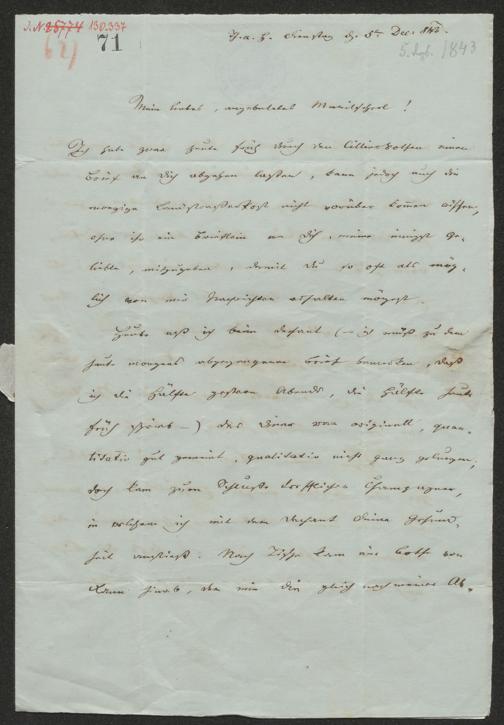 J.N. 25774 130.337
62)
71
Dienstag d. 5t Dec. 843.
5. Dez. 1843
Mein liebes, angebetetes !
Ich habe zwar heute früh durch den einen
Brief an Dich abgehen lassen, kann jedoch auch die
nicht vorüber kommen ,
ohne ihr ein Brieflein an Dich, meine innigst Ge-
liebte, mitzugeben, damit Du so oft als mög-
lich von mir Nachrichten erhalten mögest.
Heute aß ich beim Dechant (– ich muß zu dem
heute morgens abgegangenen Brief bemerken, daß
ich die Hälfte gestern Abends, die Hälfte heute
früh schrieb –) das Diner war originell, quan-
titativ gut gemeint, qualitativ nicht ganz gelungen,
doch kam zum Schlusse Champagner,
in welchem ich mit dem Dechant Deine Gesund-
heit anstieß. Nach Tische kam ein Bothe von
, der mir die gleich nach meiner Ab-